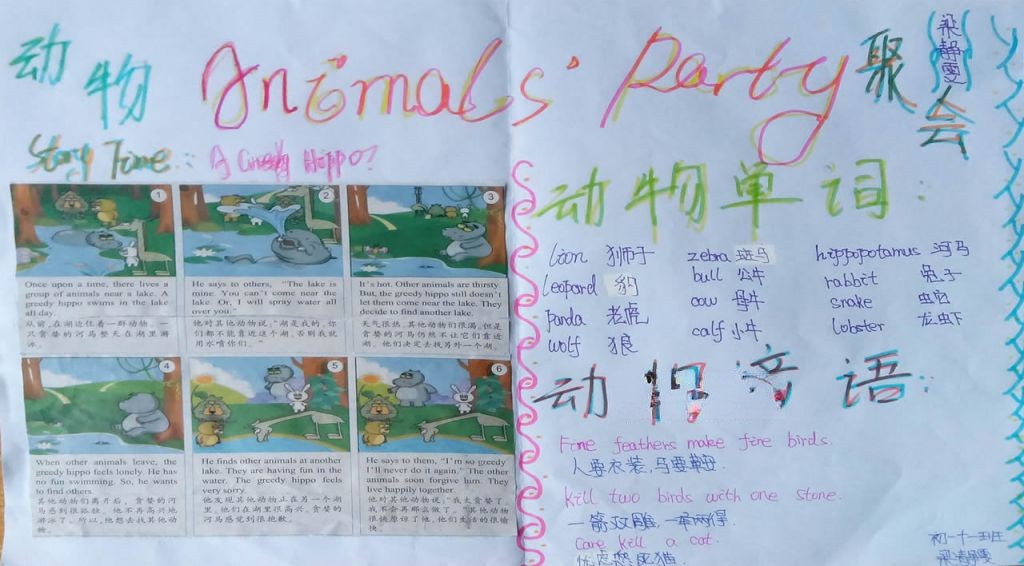 动物 Animals' Party 聚会
梁静雯
Story Time: A Greedy Hippo?
1
Once upon a time, there lives a
group of animals near a lake. A
greedy hippo swims in the lake
all day.
从前,在湖边住着一群动物。一
只贪婪的河马整天在湖里游
泳。
2
He says to others, "The lake is
mine. You can't come near the
lake. Or, I will spray water all
over you."
他对其他动物说:"湖是我的,你
们都不能靠近这个湖,否则我就
用水喷你们。"
3
It's hot. Other animals are thirsty.
But, the greedy hippo still doesn't
let them come near the lake. They
decide to find another lake.
天气很热,其他动物们很渴,但是
贪婪的河马仍然不让它们靠近
湖。他们决定去找另外一个湖。
4
When other animals leave, the
greedy hippo feels lonely. He has
no fun swimming. So, he wants
to find others.
其他动物们离开后,贪婪的河
马感到很孤独。他不再高兴地
游泳了。所以,他想去找其他动
物。
5
He finds other animals at another
lake. They are having fun in the
water. The greedy hippo feels
very sorry.
他发现其他动物正在另一个湖
里。他们在湖里很高兴。贪婪的
河马感觉到很抱歉。
6
He says to them, "I'm so greedy
I'll never do it again." The other
animals soon forgive him. They
live happily together.
他对其他动物说:"我太贪婪了,
我不会再那么做了。"其他动物
很快原谅了他,他们生活的很愉
快。
动物单词:
lion 狮子 zebra 斑马 hippopotamus 河马
leopard 豹 bull 公牛 rabbit 兔子
panda 老虎 cow 母牛 snake
wolf 狼 calf 小牛 lobster 龙虾
动物 语:
Fine feathers make fine birds.
人要衣装,马要鞍
kill two birds with one stone.
一箭双雕,一举两得.
Care kill a cat.
忧虑 死猫.
初一十一班
梁静雯